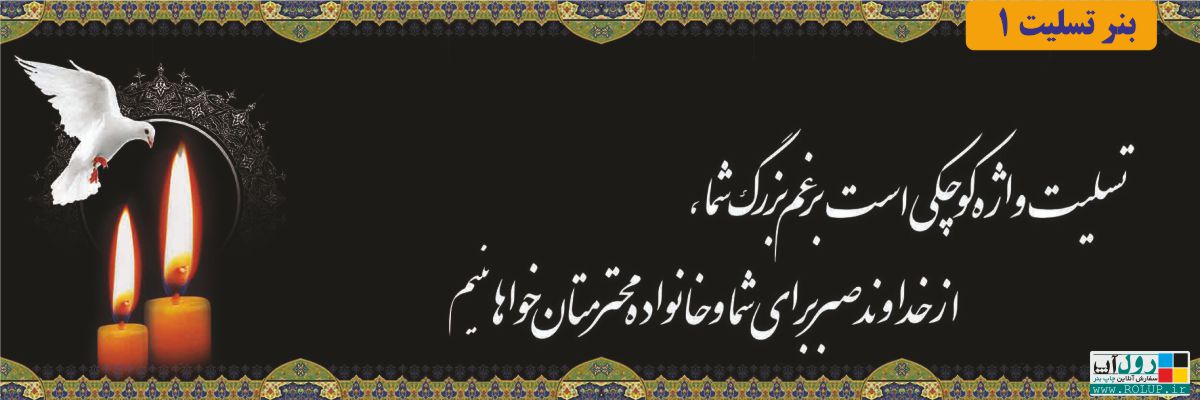 بنر تسلیت ۱
تسلیت واژه کوچکی است برغم بزرگ شما،
از خداوند صبر برای شما و خانواده محترمتان خواهانیم
رول آپ
سفارش آنلاین چاپ بنر
www.ROLUP.ir